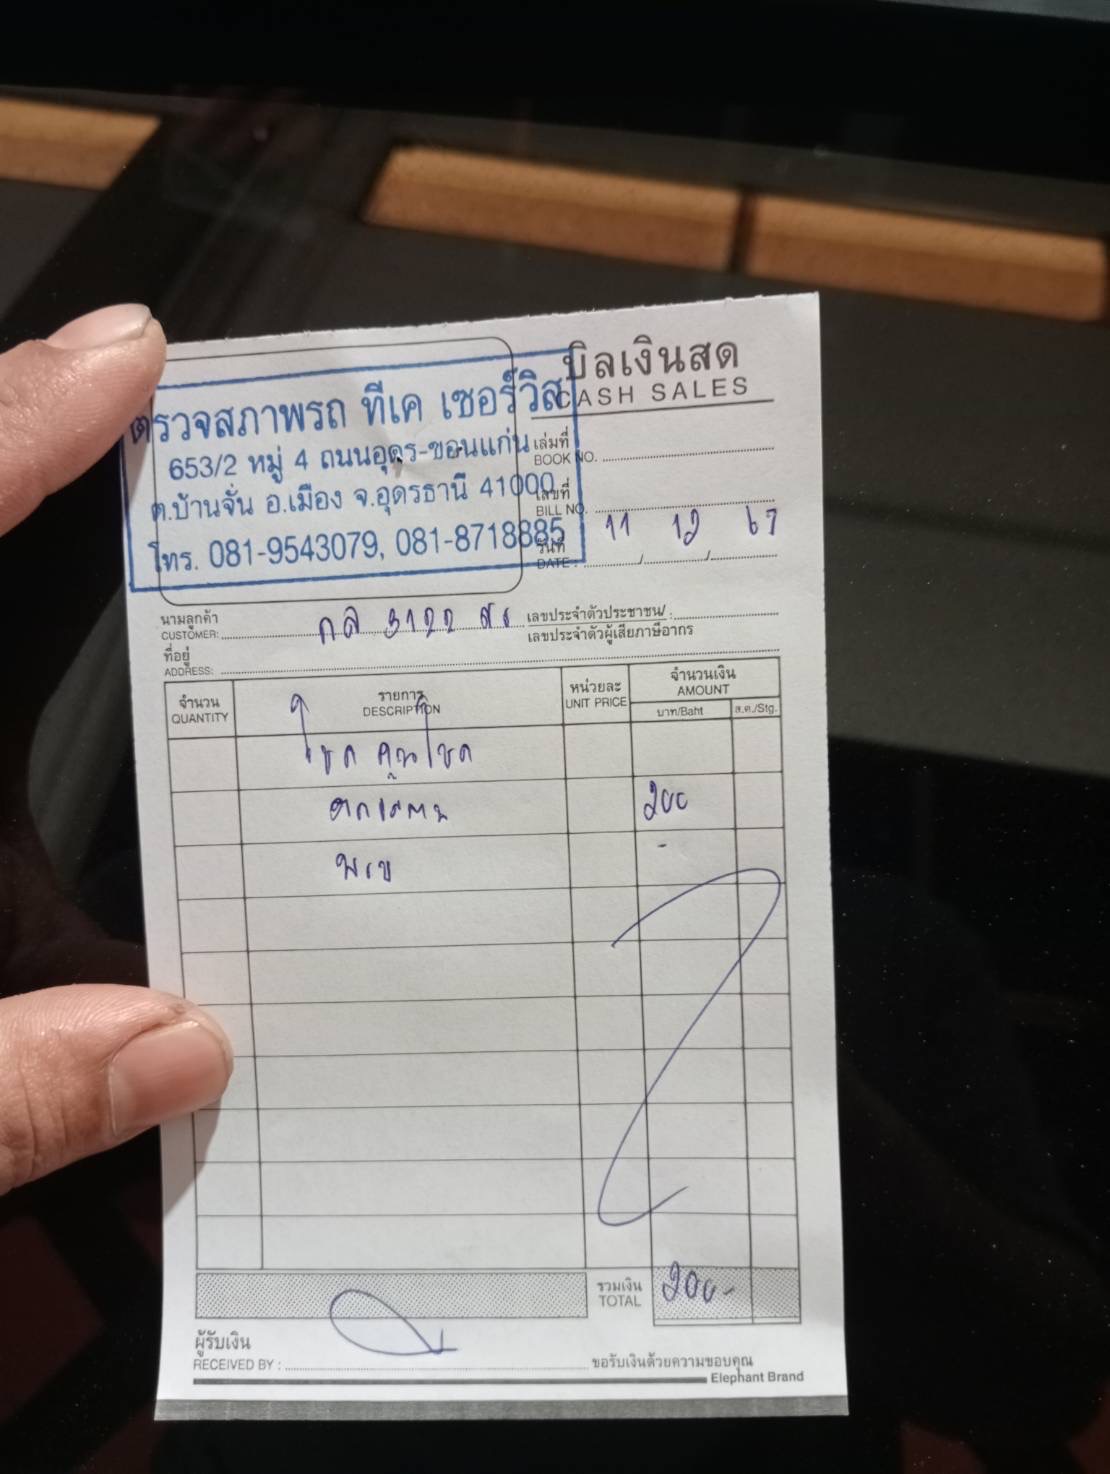 บิลเงินสด
CASH SALES
ตรวจสภาพรถ ทีเค เซอร์วิส
653/2 หมู่ 4 ถนนอุดร-ขอนแก่น
ต.บ้านจั่น อ.เมือง จ.อุดรธานี 41000
โทร. 081-9543079, 081-8718885
เล่มที่
BOOK NO.
เลขที่
BILL NO.
วันที่
DATE : 11 / 12 / 67
นามลูกค้า
CUSTOMER: กล 3122
เลขประจำตัวประชาชน/
เลขประจำตัวผู้เสียภาษีอากร
ที่อยู่
ADDRESS:
จำนวน
QUANTITY
รายการ
DESCRIPTION
หน่วยละ
UNIT PRICE
จำนวนเงิน
AMOUNT
บาท/Baht
ส.ต./Stg.
200
-
รวมเงิน
TOTAL
200-
ผู้รับเงิน
RECEIVED BY :
ขอรับเงินด้วยความขอบคุณ
Elephant Brand